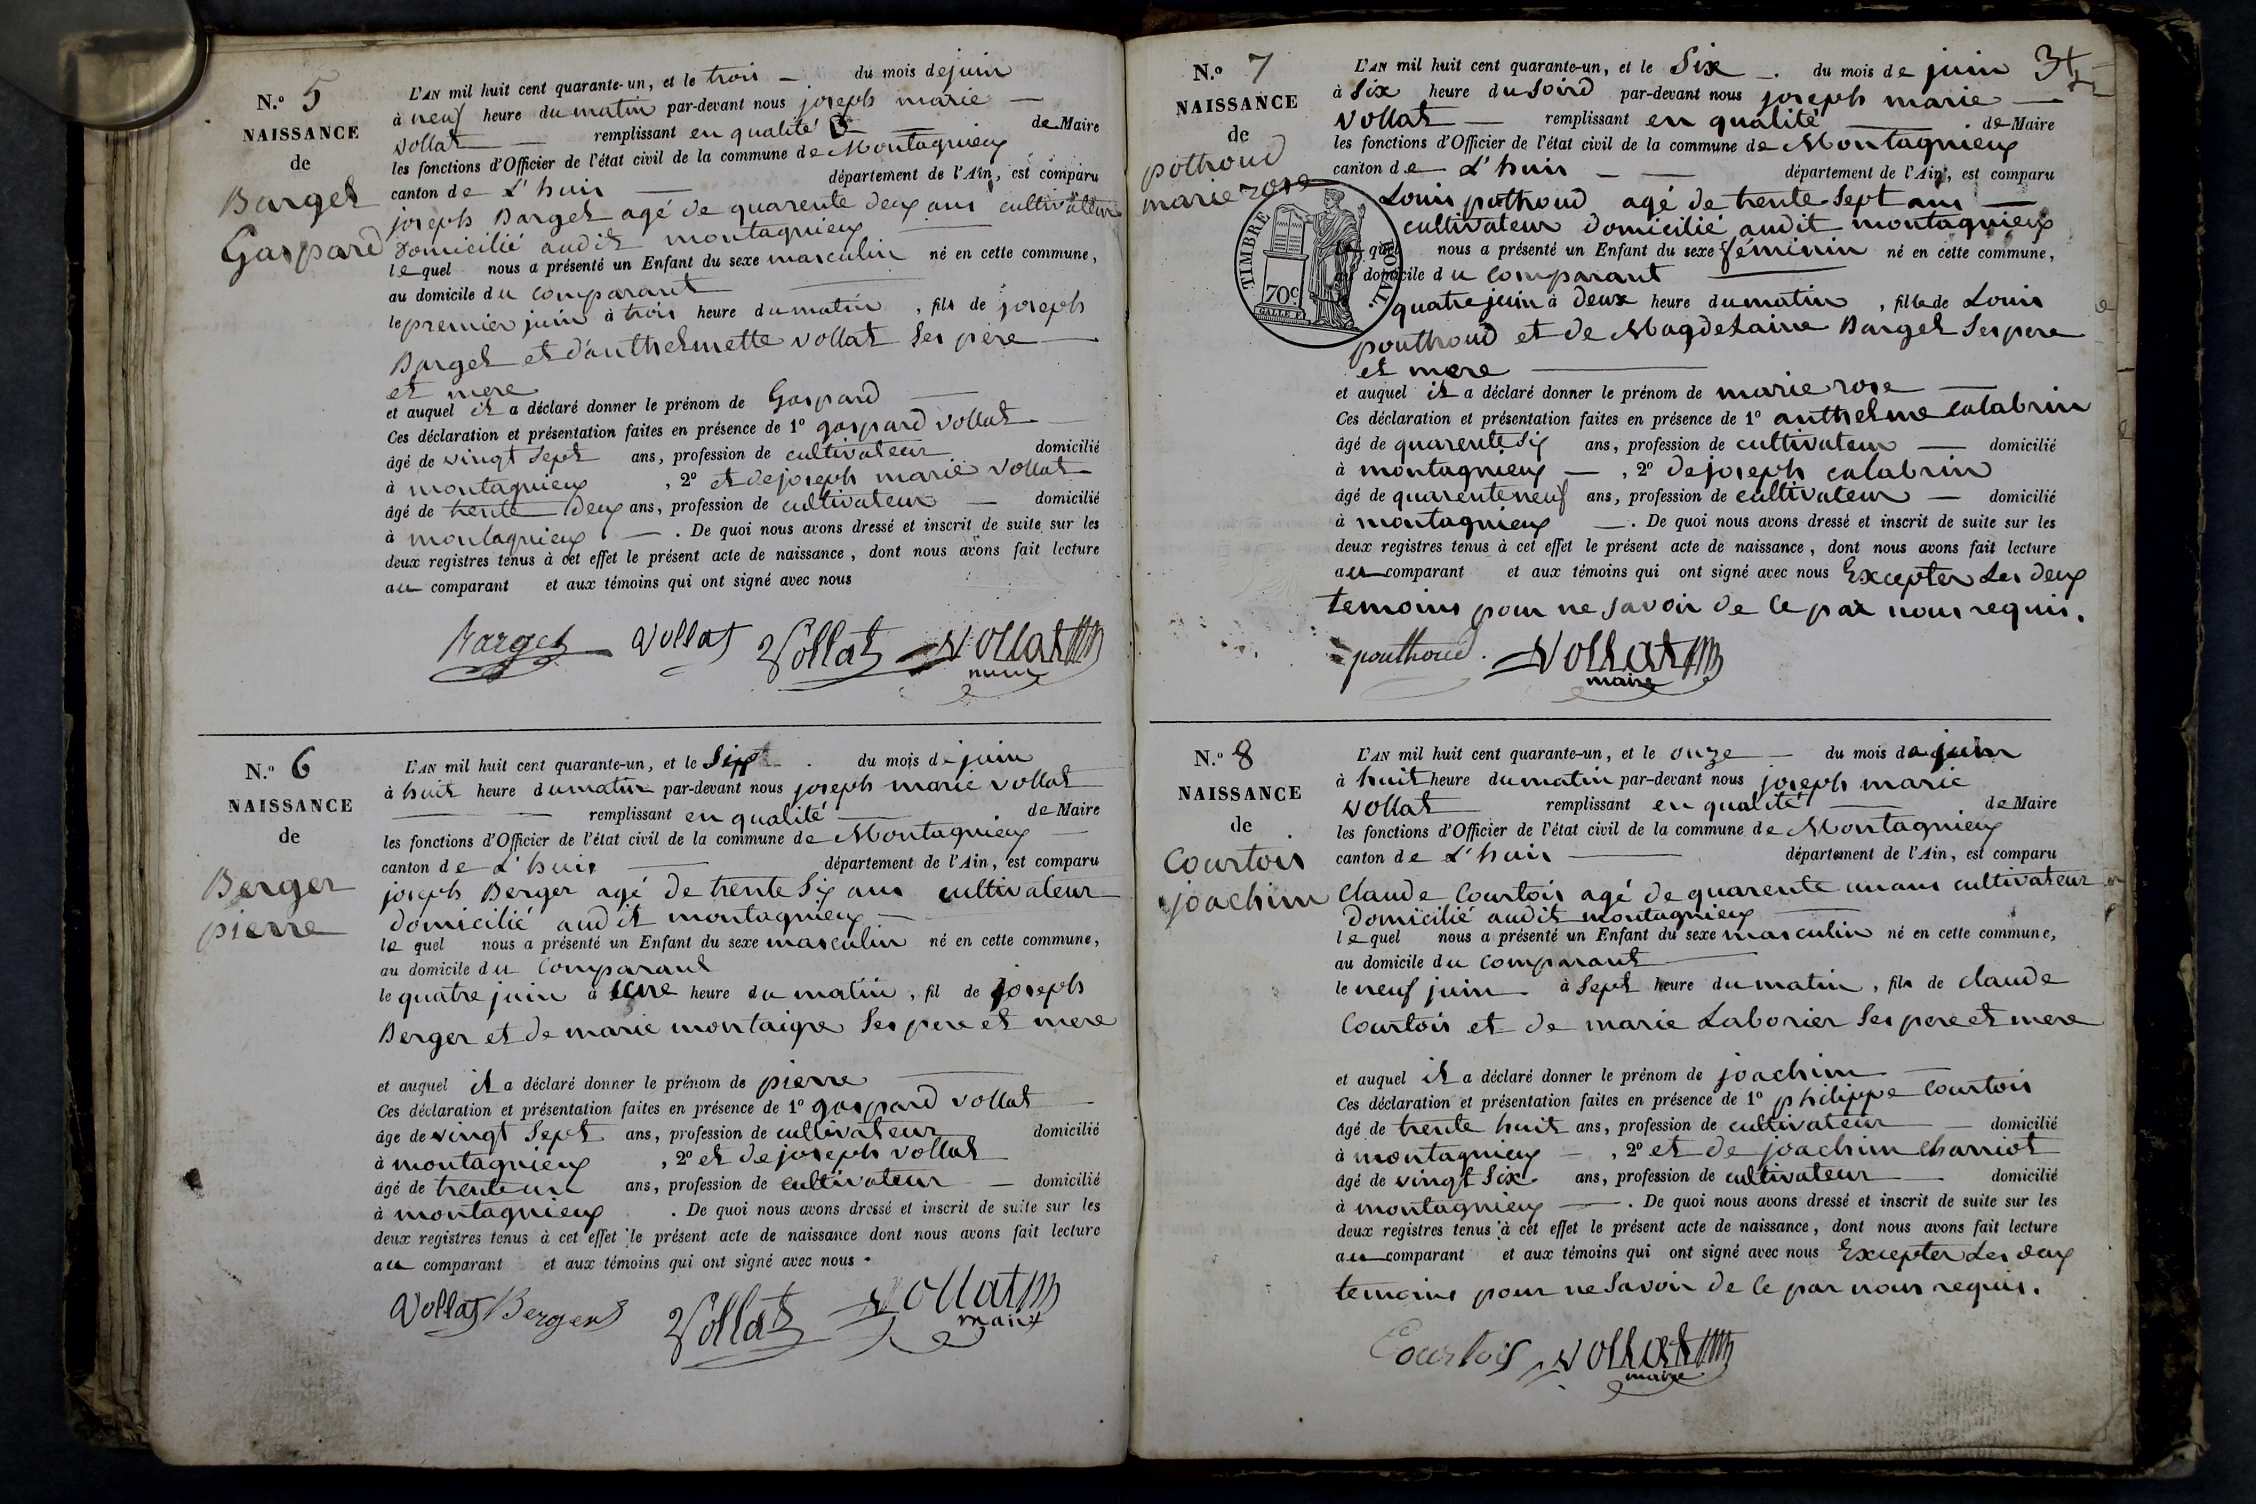 N.o 5
NAISSANCE
de
Barget
Gaspard
L'AN mil huit cent quarante-un, et le trois du mois de juin
à neuf heure du matin par-devant nous joseph marie
vollat remplissant en qualité de Maire
les fonctions d'Officier de l'état civil de la commune de Montagnieux
canton de L'huis département de l'Ain, est comparu
joseph Barget agé de quarente deux ans cultivateur
domicilié audit montagnieux
lequel nous a présenté un Enfant du sexe masculin né en cette commune,
au domicile du comparant
le premier juin à trois heure du matin, fils de joseph
Barget et d'anthelmette vollat ses père
et mere
et auquel il a déclaré donner le prénom de Gaspard
Ces déclaration et présentation faites en présence de 1o gaspard vollat
âgé de vingt sept ans, profession de cultivateur domicilié
à montagnieux, 2o et de joseph marie vollat
âgé de trente deux ans, profession de cultivateur domicilié
à montagnieux. De quoi nous avons dressé et inscrit de suite sur les
deux registres tenus à cet effet le présent acte de naissance, dont nous avons fait lecture
au comparant et aux témoins qui ont signé avec nous
Barget vollat Vollat vollat
maire
N.o 6
NAISSANCE
de
Berger
pierre
L'AN mil huit cent quarante-un, et le du mois de juin
à huit heure du matin par-devant nous joseph marie vollat
remplissant en qualité de Maire
les fonctions d'Officier de l'état civil de la commune de Montagnieux
canton de L'huis département de l'Ain, est comparu
joseph Berger agé de trente six ans cultivateur
domicilié audit montagnieux
le quel nous a présenté un Enfant du sexe masculin né en cette commune,
au domicile du comparant
le quatre juin à heure du matin, fil de joseph
Berger et de marie montaigre ses pere et mere
et auquel il a déclaré donner le prénom de pierre
Ces déclaration et présentation faites en présence de 1o gaspard vollat
âge de vingt sept ans, profession de cultivateur domicilié
à montagnieux, 2o et de joseph vollat
âgé de trente un ans, profession de cultivateur domicilié
à montagnieux. De quoi nous avons dressé et inscrit de suite sur les
deux registres tenus à cet effet le présent acte de naissance dont nous avons fait lecture
au comparant et aux témoins qui ont signé avec nous.
Vollat Berger Vollat vollat
maire
N.o 7
NAISSANCE
de
pothoud
marie rose
TIMBRE ROYAL.
70c
L'AN mil huit cent quarante-un, et le Six du mois de juin
à Six heure du soird par-devant nous joseph marie
vollat remplissant en qualité de Maire
les fonctions d'Officier de l'état civil de la commune de Montagnieux
canton de L'huis département de l'Ain, est comparu
Louis pothoud agé de trente sept ans
cultivateur domicilié audit montagnieux
quel nous a présenté un Enfant du sexe féminin né en cette commune,
au domicile du comparant
quatre juin à deux heure du matin, fille de Louis
pouthoud et de Magdelaine Barget ses pere
et mere
et auquel il a déclaré donner le prénom de marie rose
Ces déclaration et présentation faites en présence de 1o anthelme calabrin
âgé de quarente six ans, profession de cultivateur domicilié
à montagnieux, 2o de joseph calabrin
âgé de quarente neuf ans, profession de cultivateur domicilié
à montagnieux. De quoi nous avons dressé et inscrit de suite sur les
deux registres tenus à cet effet le présent acte de naissance, dont nous avons fait lecture
au comparant et aux témoins qui ont signé avec nous Excepter Les deux
temoins pour ne savoir de ce par nous requis.
pouthoud. vollat
maire
N.o 8
NAISSANCE
de
Courtois
joachim
L'AN mil huit cent quarante-un, et le onze du mois de juin
à huit heure du matin par-devant nous joseph marie
vollat remplissant en qualité de Maire
les fonctions d'Officier de l'état civil de la commune de Montagnieux
canton de L'huis département de l'Ain, est comparu
claude Courtois agé de quarente un ans cultivateur
domicilié audit montagnieux
lequel nous a présenté un Enfant du sexe masculin né en cette commune,
au domicile du comparant
le neuf juin à Sept heure du matin, fils de claude
Courtois et de marie Laborier ses pere et mere
et auquel il a déclaré donner le prénom de joachim
Ces déclaration et présentation faites en présence de 1o philippe Courtois
âgé de trente huit ans, profession de cultivateur domicilié
à montagnieux, 2o et de joachim charriot
âgé de vingt six ans, profession de cultivateur domicilié
à montagnieux. De quoi nous avons dressé et inscrit de suite sur les
deux registres tenus à cet effet le présent acte de naissance, dont nous avons fait lecture
au comparant et aux témoins qui ont signé avec nous Excepter Les deux
temoins pour ne savoir de ce par nous requis.
Courtois vollat
maire